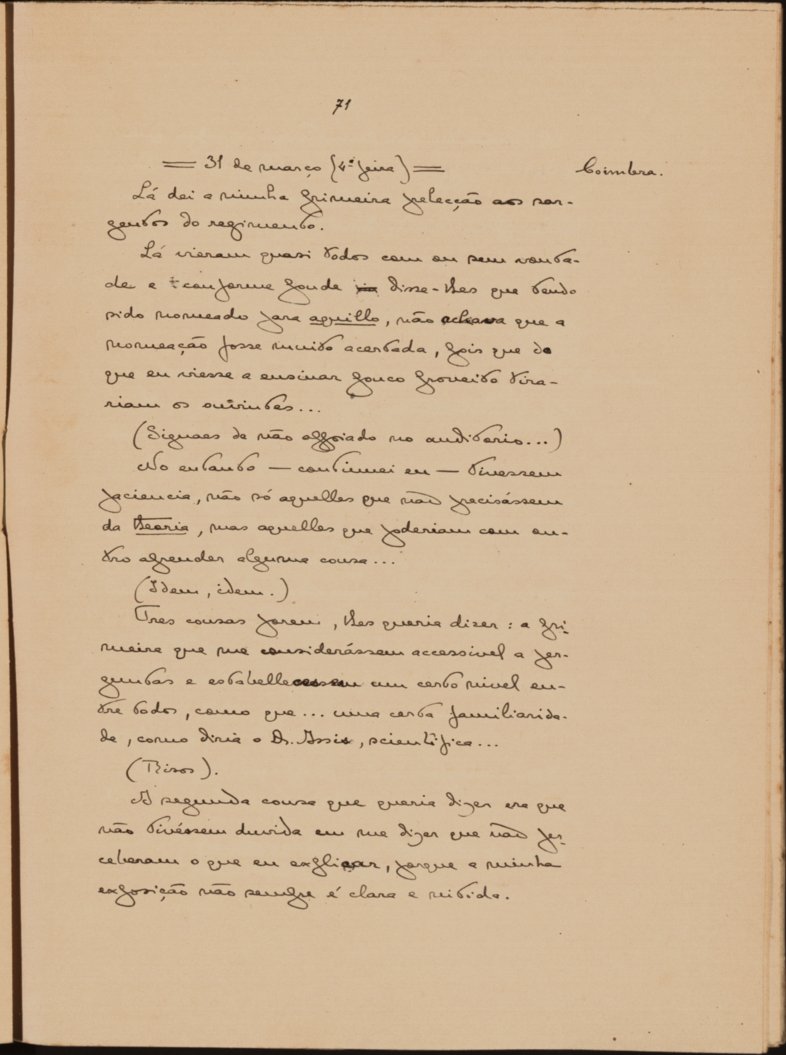 71
= 31 de março (4ª feira) =
Coimbra.
Lá dei a minha primeira prelecção aos sar-
gentos do regimento.
Lá vieram quasi todos com ou sem vonta-
de e conforme poude disse-lhes que tendo
sido nomeado para aquillo, não achava que a
nomeação fosse muito acertada, pois que do
que eu viesse a ensinar pouco proveito tira-
riam os ouvintes...
(Signaes de não appoiado no auditorio...)
No entanto — continuei eu — tivessem
paciencia, não só aquelles que não precisássem
da theoria, mas aquelles que poderiam com ou-
tro aprender alguma cousa...
(Idem, idem.)
Tres cousas porem, lhes queria dizer: a pri-
meira que me considerássem accessivel a per-
guntas e estabellecessem um certo nivel en-
tre todos, como que... uma certa familiarida-
de, como diria o Dr. Assis, scientifica...
(Risos).
A segunda cousa que queria dizer era que
não tivéssem duvida em me dizer que não per-
ceberam o que eu explicar, porque a minha
exposição não sempre é clara e nitida.